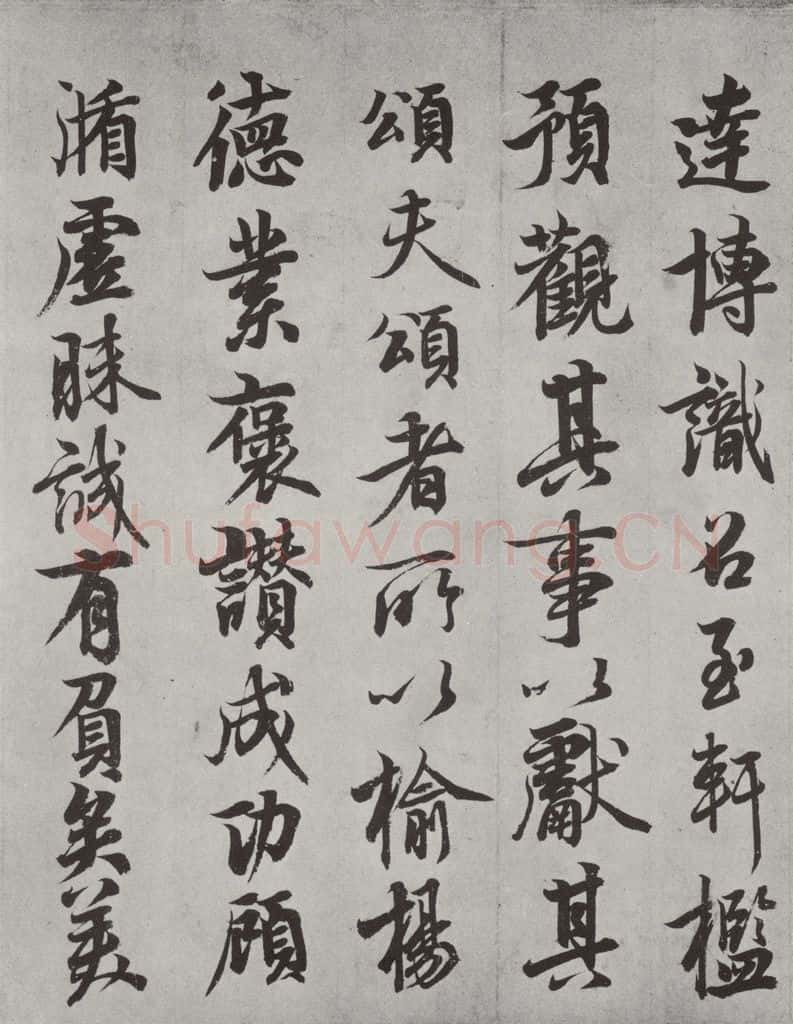 達博識召至軒檻
預觀其事以獻其
頌夫頌者所以榆楊
德業褒讚成功顧
循虛昧誠有負矣美
Shufawang.CN